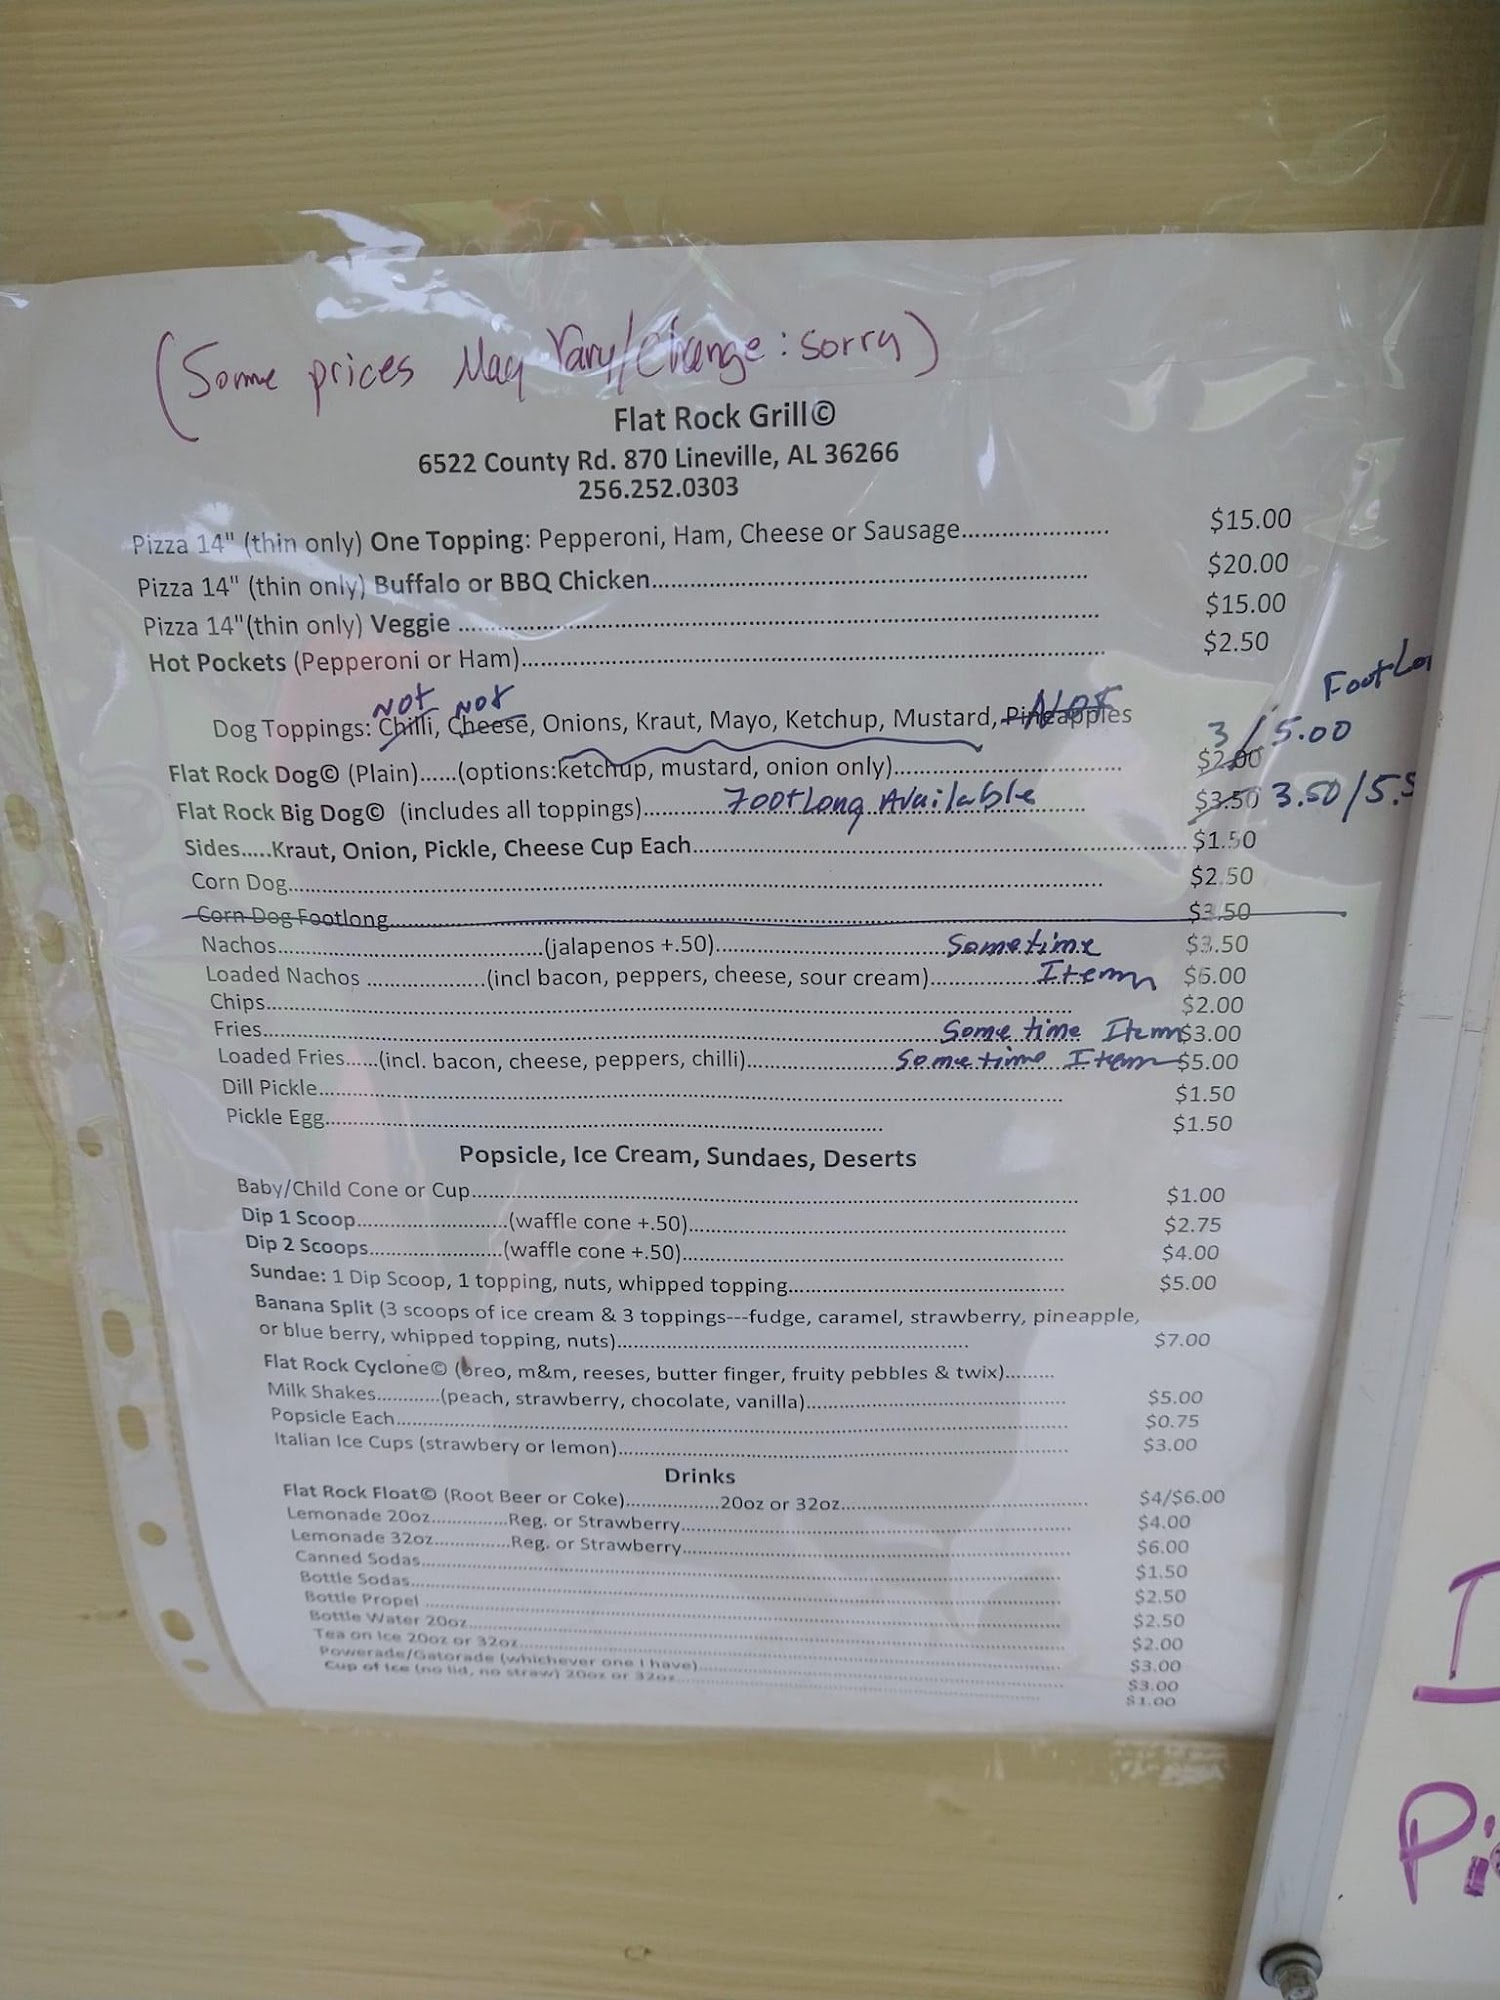 (Some prices May Vary/Change: sorry)
Flat Rock Grill©
6522 County Rd. 870 Lineville, AL 36266
256.252.0303
Pizza 14" (thin only) One Topping: Pepperoni, Ham, Cheese or Sausage.......................... $15.00
Pizza 14" (thin only) Buffalo or BBQ Chicken.......................... $20.00
Pizza 14"(thin only) Veggie .......................... $15.00
Hot Pockets (Pepperoni or Ham).......................... $2.50
FootLo
NOT NOT NOT
Dog Toppings: Chilli, Cheese, Onions, Kraut, Mayo, Ketchup, Mustard, Pineapples
3 / 5.00
Flat Rock Dog© (Plain)......(options:ketchup, mustard, onion only).......................... $2.00
Flat Rock Big Dog© (includes all toppings)........ FootLong Available ........ $3.50 3.50/5.5
Sides.....Kraut, Onion, Pickle, Cheese Cup Each.......................... $1.50
Corn Dog.......................... $2.50
Corn Dog Footlong.......................... $3.50
Nachos..........................(jalapenos +.50).......................... Sometime $3.50
Loaded Nachos ..................(incl bacon, peppers, cheese, sour cream).................. Item
Chips.......................... $2.00
Fries.......................... Some time Item $3.00
Loaded Fries......(incl. bacon, cheese, peppers, chilli).......................... Some time Item $5.00
Dill Pickle.......................... $1.50
Pickle Egg.......................... $1.50
Popsicle, Ice Cream, Sundaes, Deserts
Baby/Child Cone or Cup.......................... $1.00
Dip 1 Scoop..........................(waffle cone +.50).......................... $2.75
Dip 2 Scoops.......................(waffle cone +.50).......................... $4.00
Sundae: 1 Dip Scoop, 1 topping, nuts, whipped topping.......................... $5.00
Banana Split (3 scoops of ice cream & 3 toppings---fudge, caramel, strawberry, pineapple,
or blue berry, whipped topping, nuts).......................... $7.00
Flat Rock Cyclone© (oreo, m&m, reeses, butter finger, fruity pebbles & twix).........
Milk Shakes............(peach, strawberry, chocolate, vanilla).......................... $5.00
Popsicle Each.......................... $0.75
Italian Ice Cups (strawbery or lemon).......................... $3.00
Drinks
Flat Rock Float© (Root Beer or Coke)..................20oz or 32oz.......................... $4/$6.00
Lemonade 20oz...............Reg. or Strawberry.......................... $4.00
Lemonade 32oz...............Reg. or Strawberry.......................... $6.00
Canned Sodas.......................... $1.50
Bottle Sodas.......................... $2.50
Bottle Propel .......................... $2.50
Bottle Water 20oz.......................... $2.00
Tea on Ice 20oz or 32oz.......................... $3.00
Powerade/Gatorade (whichever one I have).......................... $3.00
Cup of Ice (no lid, no straw) 20oz or 32oz.......................... $1.00
I
Pi